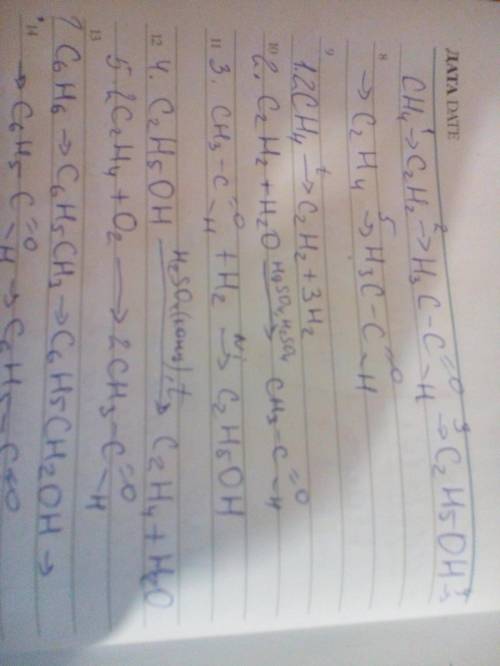 ДАТА DATE
CH4 →1 C2H2 →2 H3C-C=O-H →3 C2H5OH →4
8 → C2H4 →5 H3C-C=O-H
9
1. 2CH4 →t C2H2 + 3H2
10 2. C2H2 + H2O →HgSO4, H2SO4 CH3-C=O-H
11 3. CH3-C=O-H + H2 →Ni C2H5OH
12 4. C2H5OH →H2SO4(конц), t C2H4 + H2O
5. 2C2H4 + O2 → 2CH3-C=O-H
13
C6H6 → C6H5CH3 → C6H5CH2OH →
14 → C6H5-C=O-H → C6H5-C=O